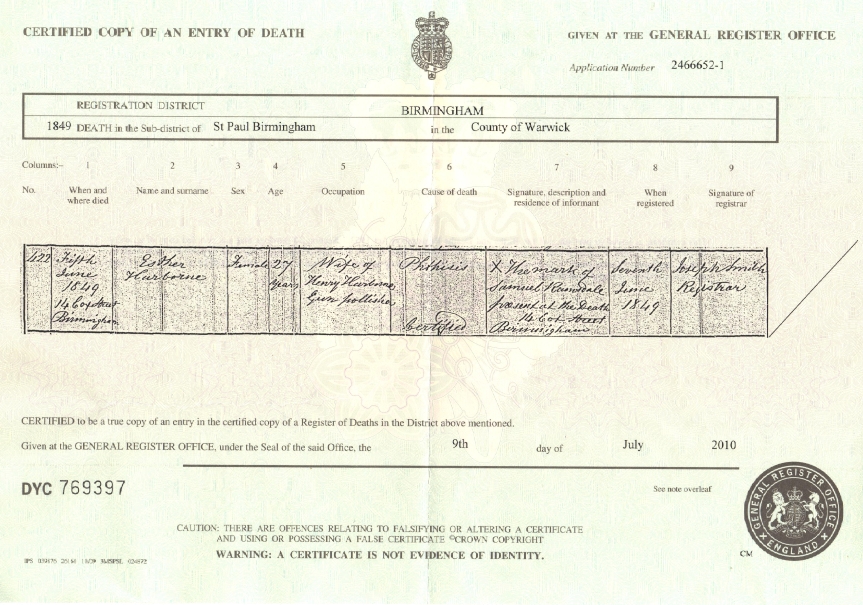 CERTIFIED COPY OF AN ENTRY OF DEATH
GIVEN AT THE GENERAL REGISTER OFFICE
Application Number 2466652-1
REGISTRATION DISTRICT BIRMINGHAM
1849 DEATH in the Sub-district of St Paul Birmingham in the County of Warwick
Columns:- 1 2 3 4 5 6 7 8 9
No. When and where died Name and surname Sex Age Occupation Cause of death Signature, description and residence of informant When registered Signature of registrar
422 Fifth June 1849 14 Street Birmingham
Esther Harborne
Female
27 years
Wife of Henry Harborne Gun polisher
Phthisis Certified
X The mark of Samuel Present at the Death 14 Street Birmingham
Seventh June 1849
Joseph Smith Registrar
CERTIFIED to be a true copy of an entry in the certified copy of a Register of Deaths in the District above mentioned.
Given at the GENERAL REGISTER OFFICE, under the Seal of the said Office, the 9th day of July 2010
DYC 769397
See note overleaf
GENERAL REGISTER OFFICE ENGLAND
CAUTION: THERE ARE OFFENCES RELATING TO FALSIFYING OR ALTERING A CERTIFICATE
AND USING OR POSSESSING A FALSE CERTIFICATE ©CROWN COPYRIGHT
WARNING: A CERTIFICATE IS NOT EVIDENCE OF IDENTITY.
CM